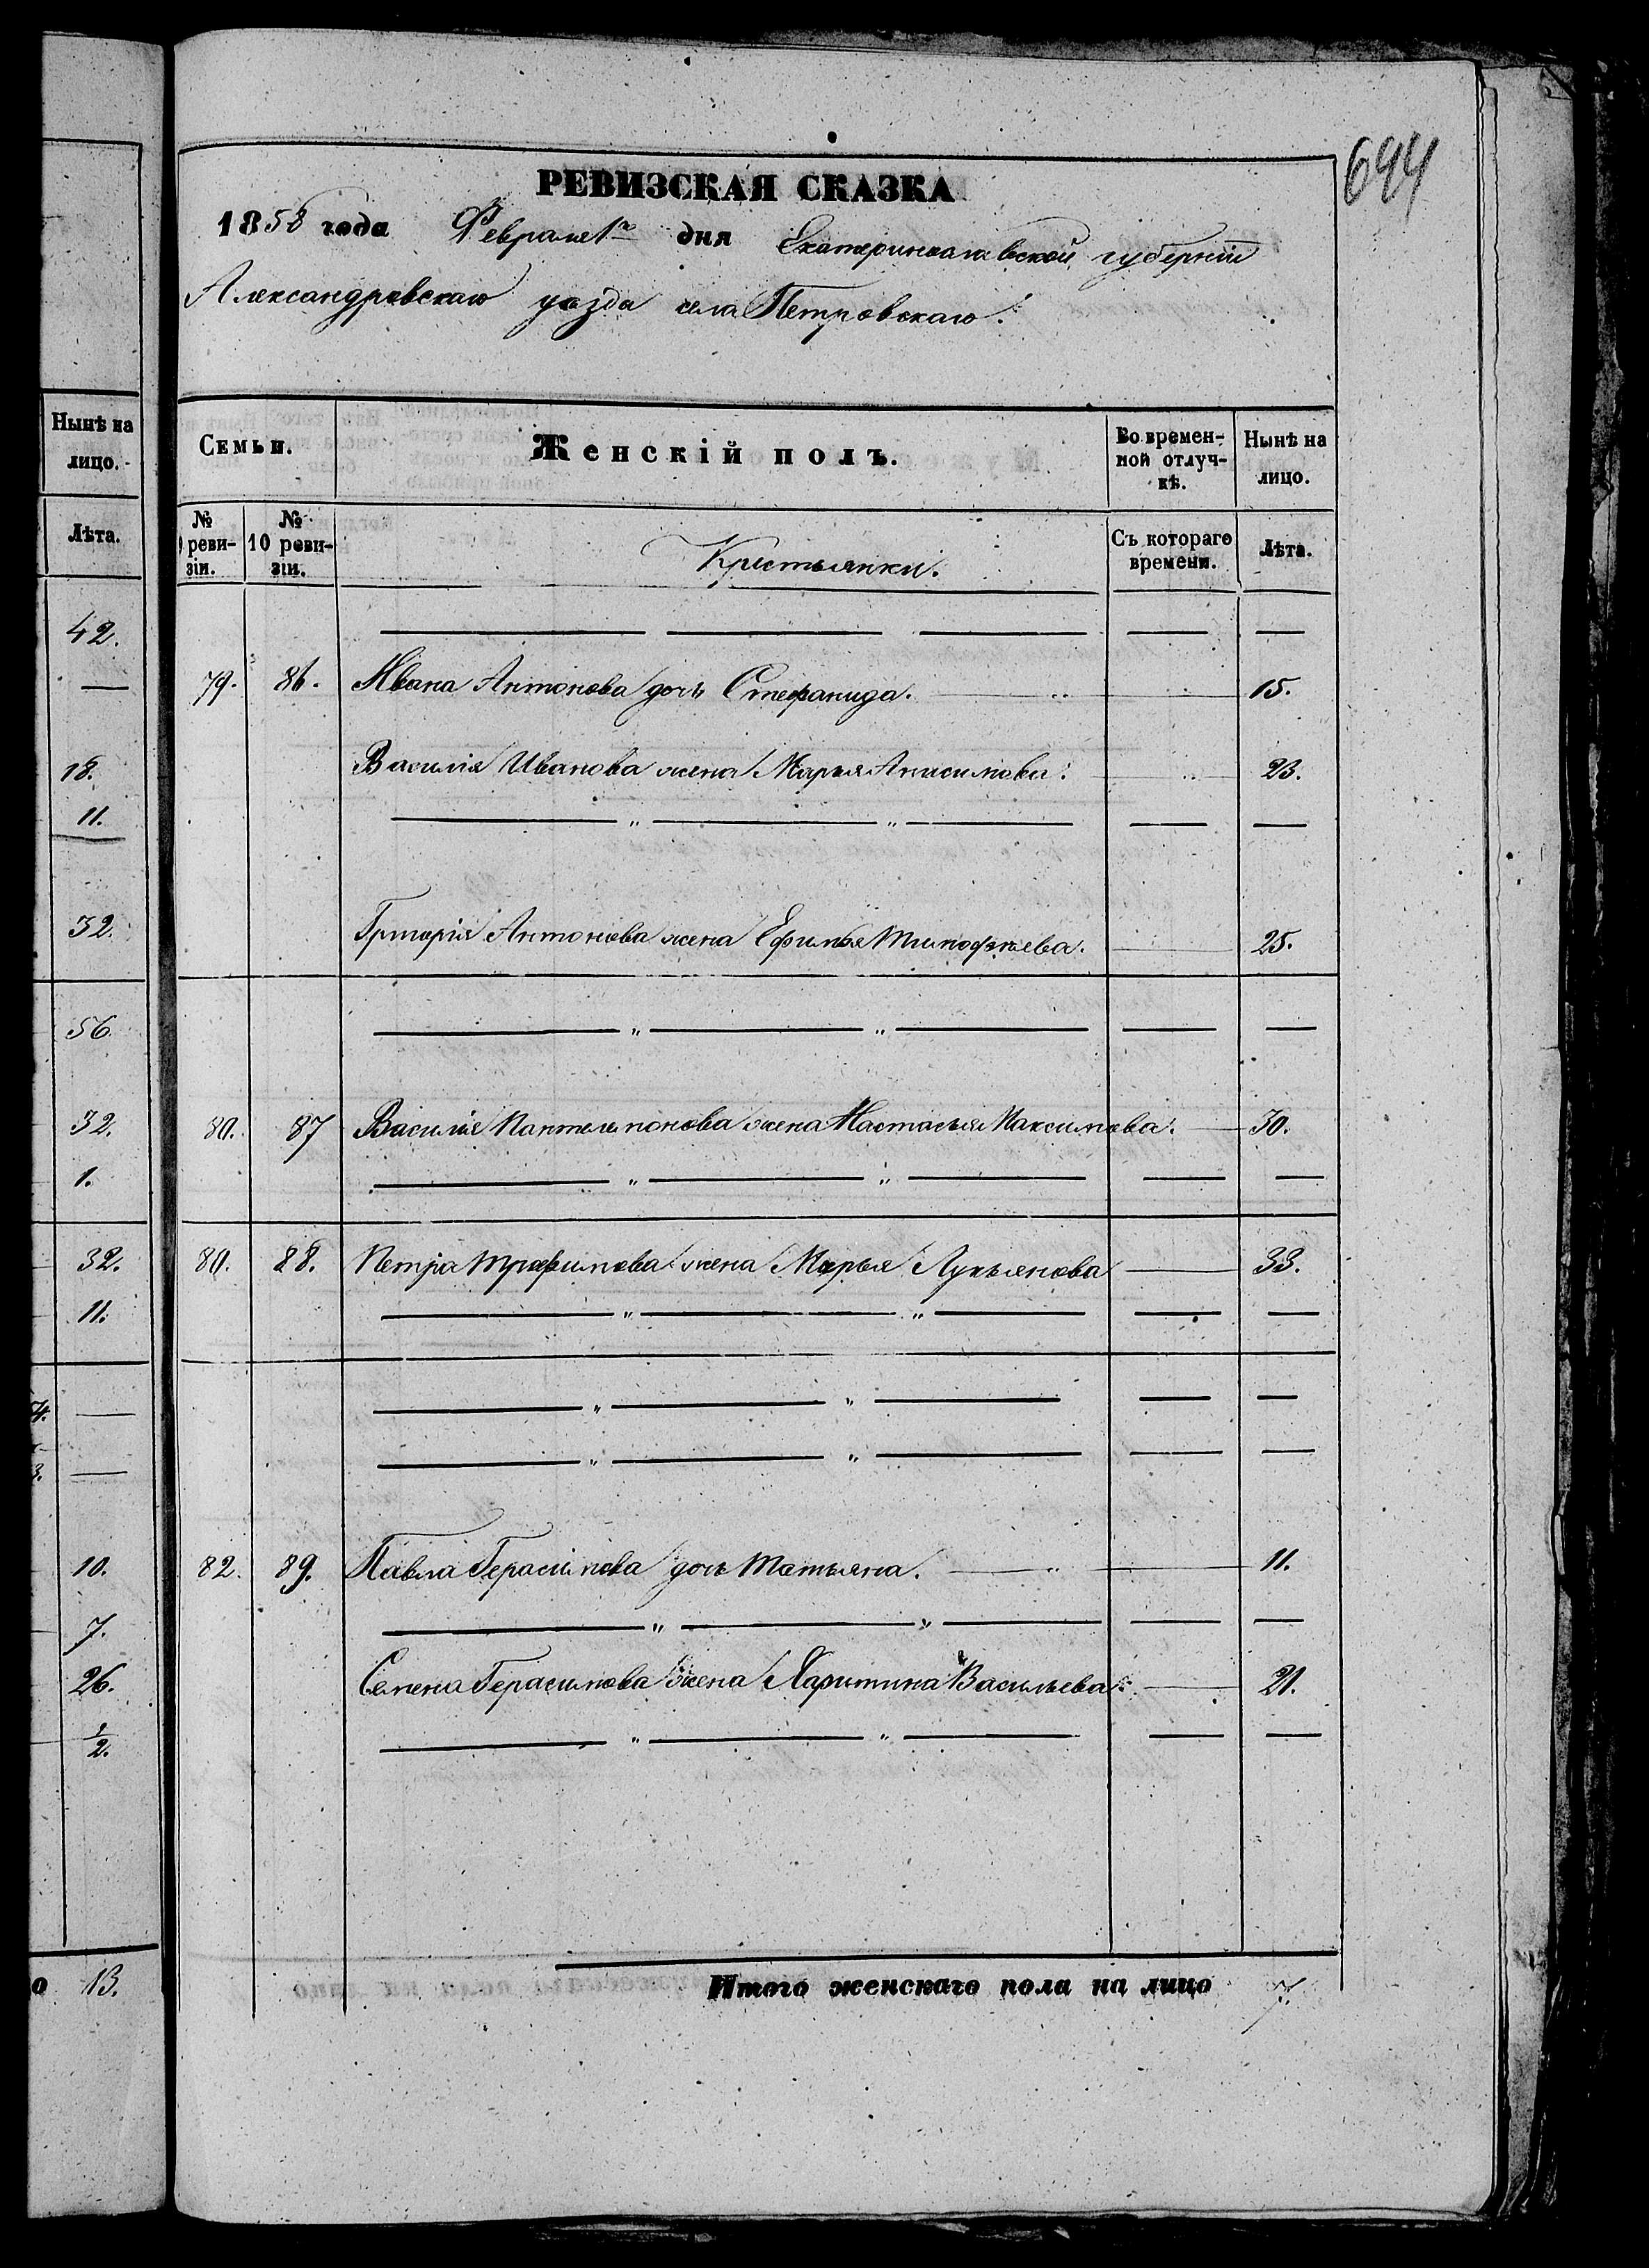 Нынѣ на
лицо.
Лѣта.
42.
18.
11.
32.
56.
32.
1.
32.
11.
10.
7.
26.
1/2.
о 13.
694
РЕВИЗСКАЯ СКАЗКА
1858 года Февраля 1го дня Екатеринославской губерніи
Александровскаго уѣзда села Петровскаго.
Семьи.
Женскій полъ.
Во времен-
ной отлуч-
кѣ.
Нынѣ на
лицо.
№
реви-
зіи.
№
10 реви-
зіи.
Крестьянки.
Съ котораго
времени.
Лѣта.
79. 86. Ивана Антонова дочь Стефанида. 15.
Василія Иванова жена Марья Анисимова. 23.
Григорія Антонова жена Ефимья Тимофѣева. 25.
80. 87 Василія Пантелимонова жена Настасья Максимова. 30.
80. 88. Петра Трофимова жена Марья Лукьянова 33.
82. 89. Павла Герасимова дочь Татьяна. 11.
Семена Герасимова жена Харитина Васильева. 21.
Итого женскаго пола на лицо 7.